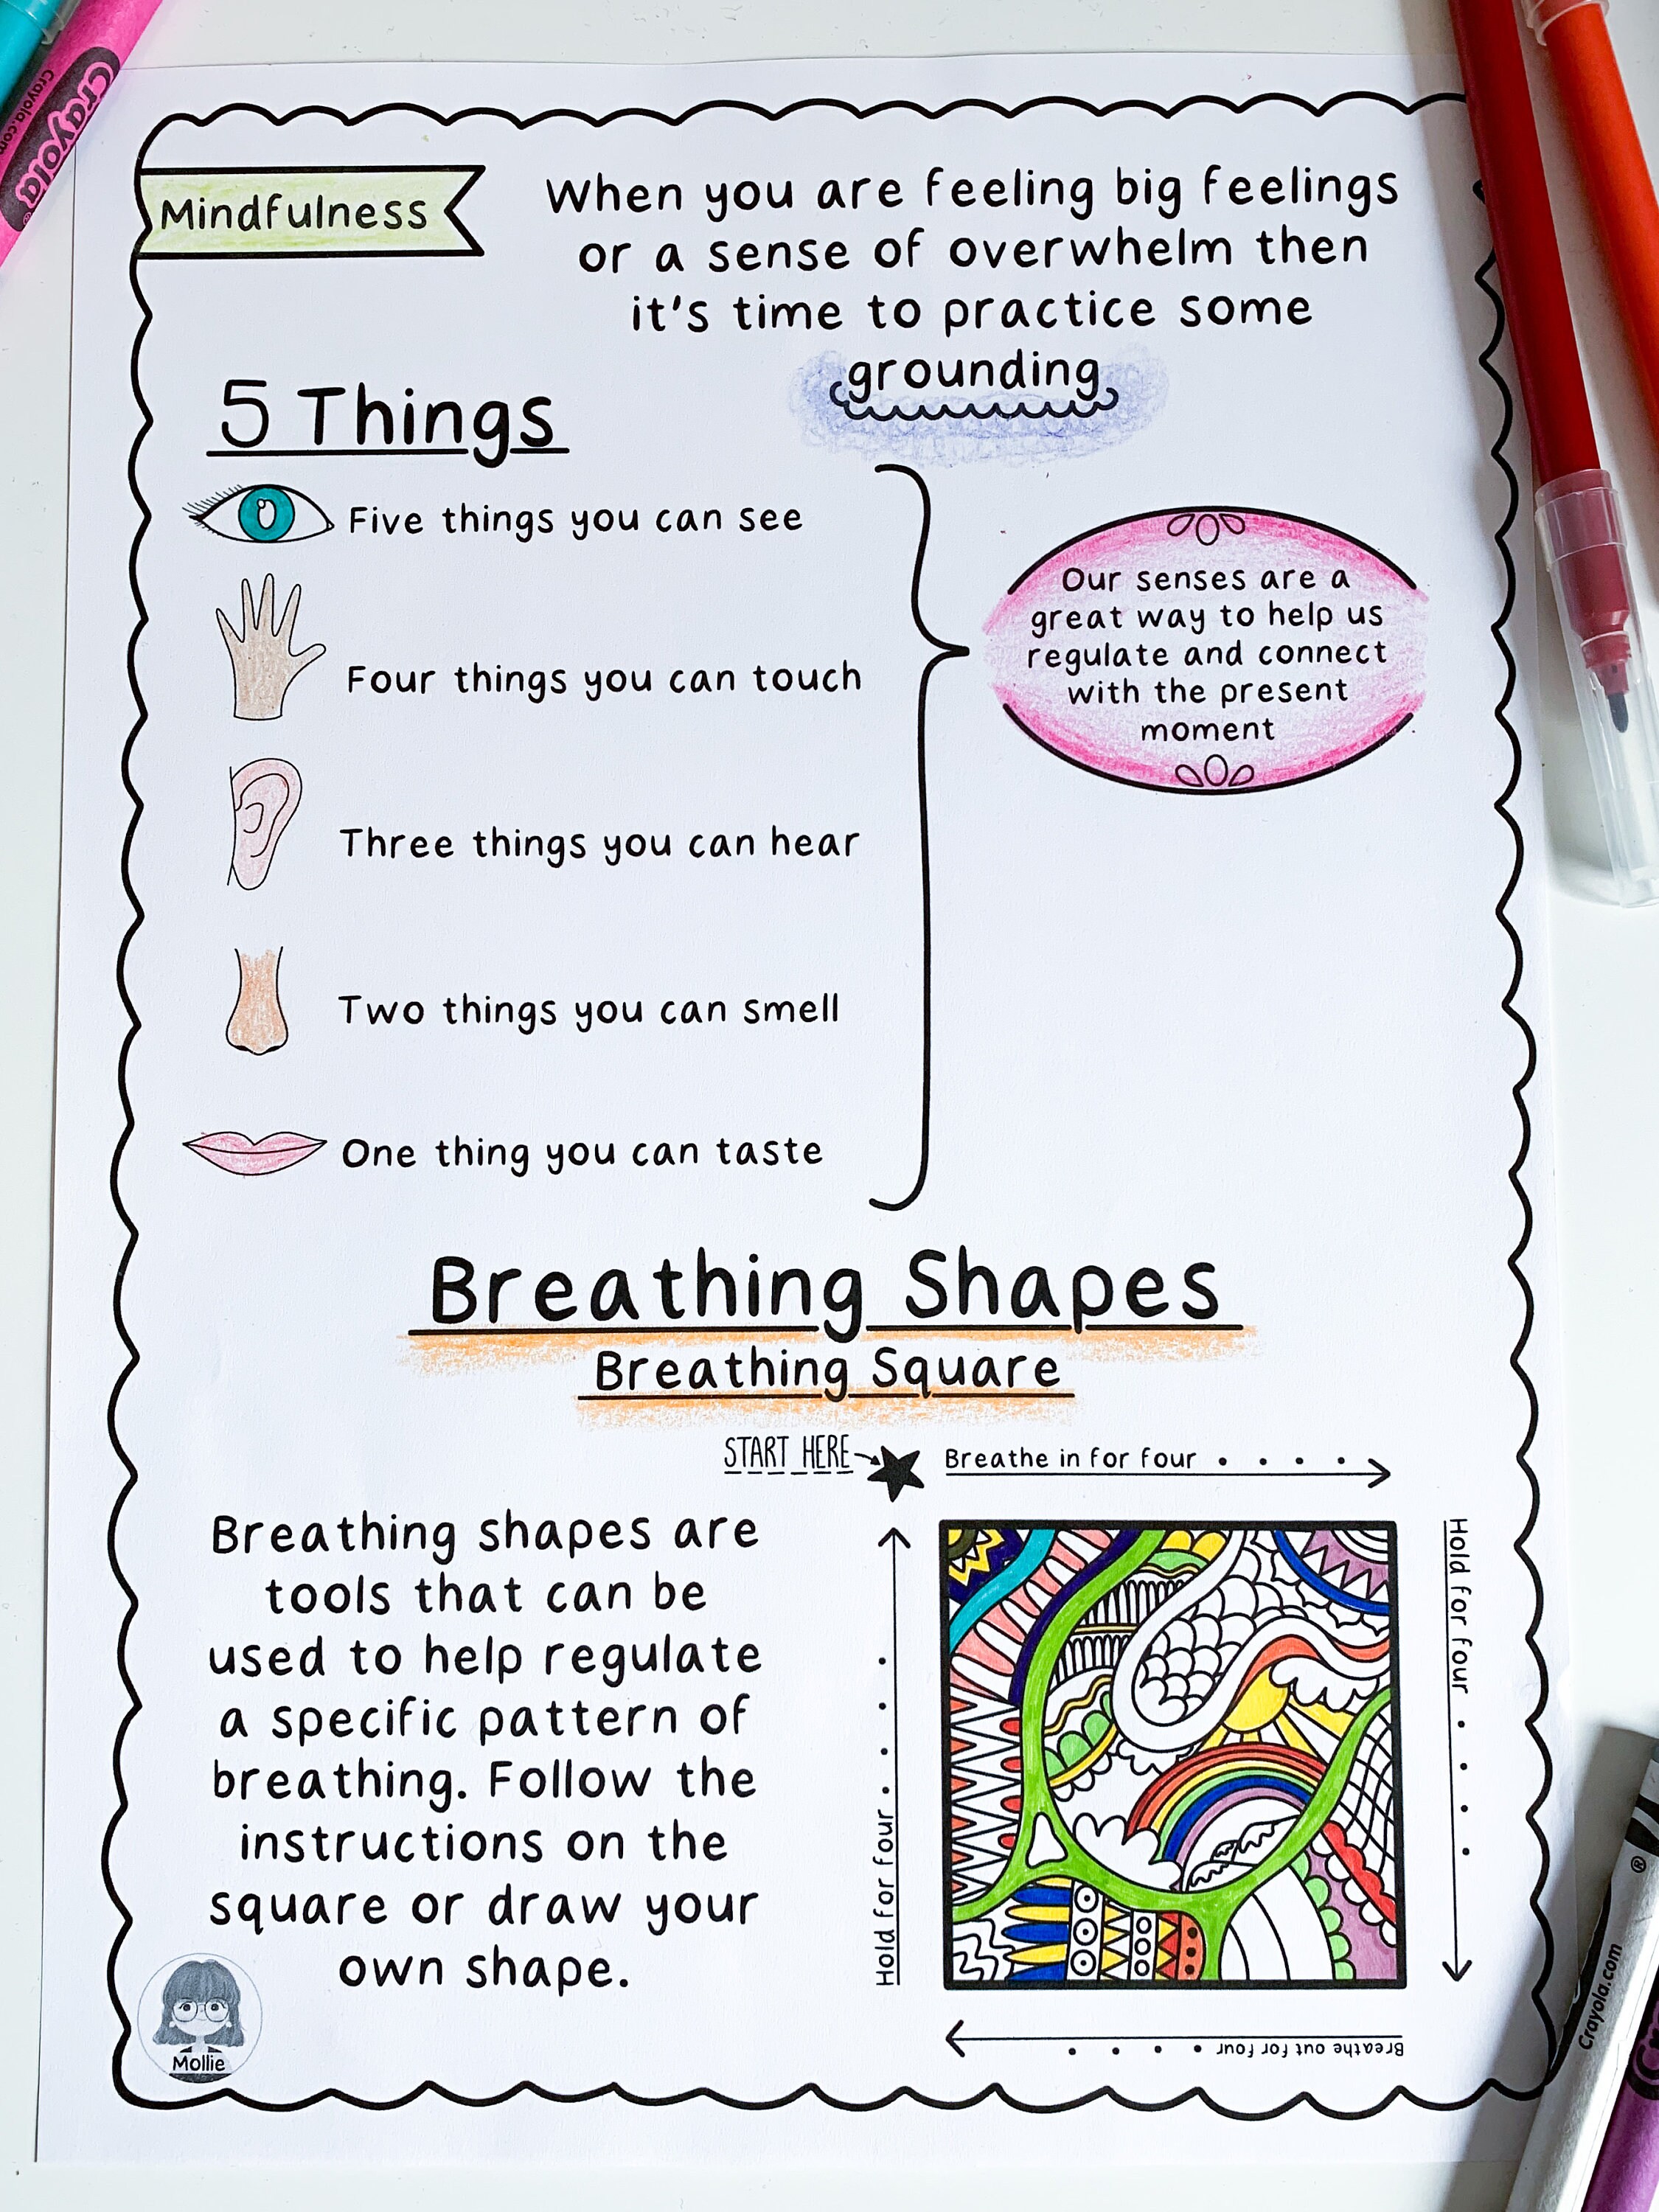 Crayola
Crayola.com
Mindfulness
When you are feeling big feelings
or a sense of overwhelm then
it's time to practice some
grounding
5 Things
Five things you can see
Four things you can touch
Three things you can hear
Two things you can smell
One thing you can taste
Our senses are a
great way to help us
regulate and connect
with the present
moment
Breathing Shapes
Breathing Square
START HERE
Breathe in for four
Hold for four
Breathe out for four
Hold for four
Breathing shapes are
tools that can be
used to help regulate
a specific pattern of
breathing. Follow the
instructions on the
square or draw your
own shape.
Mollie
Crayola.com